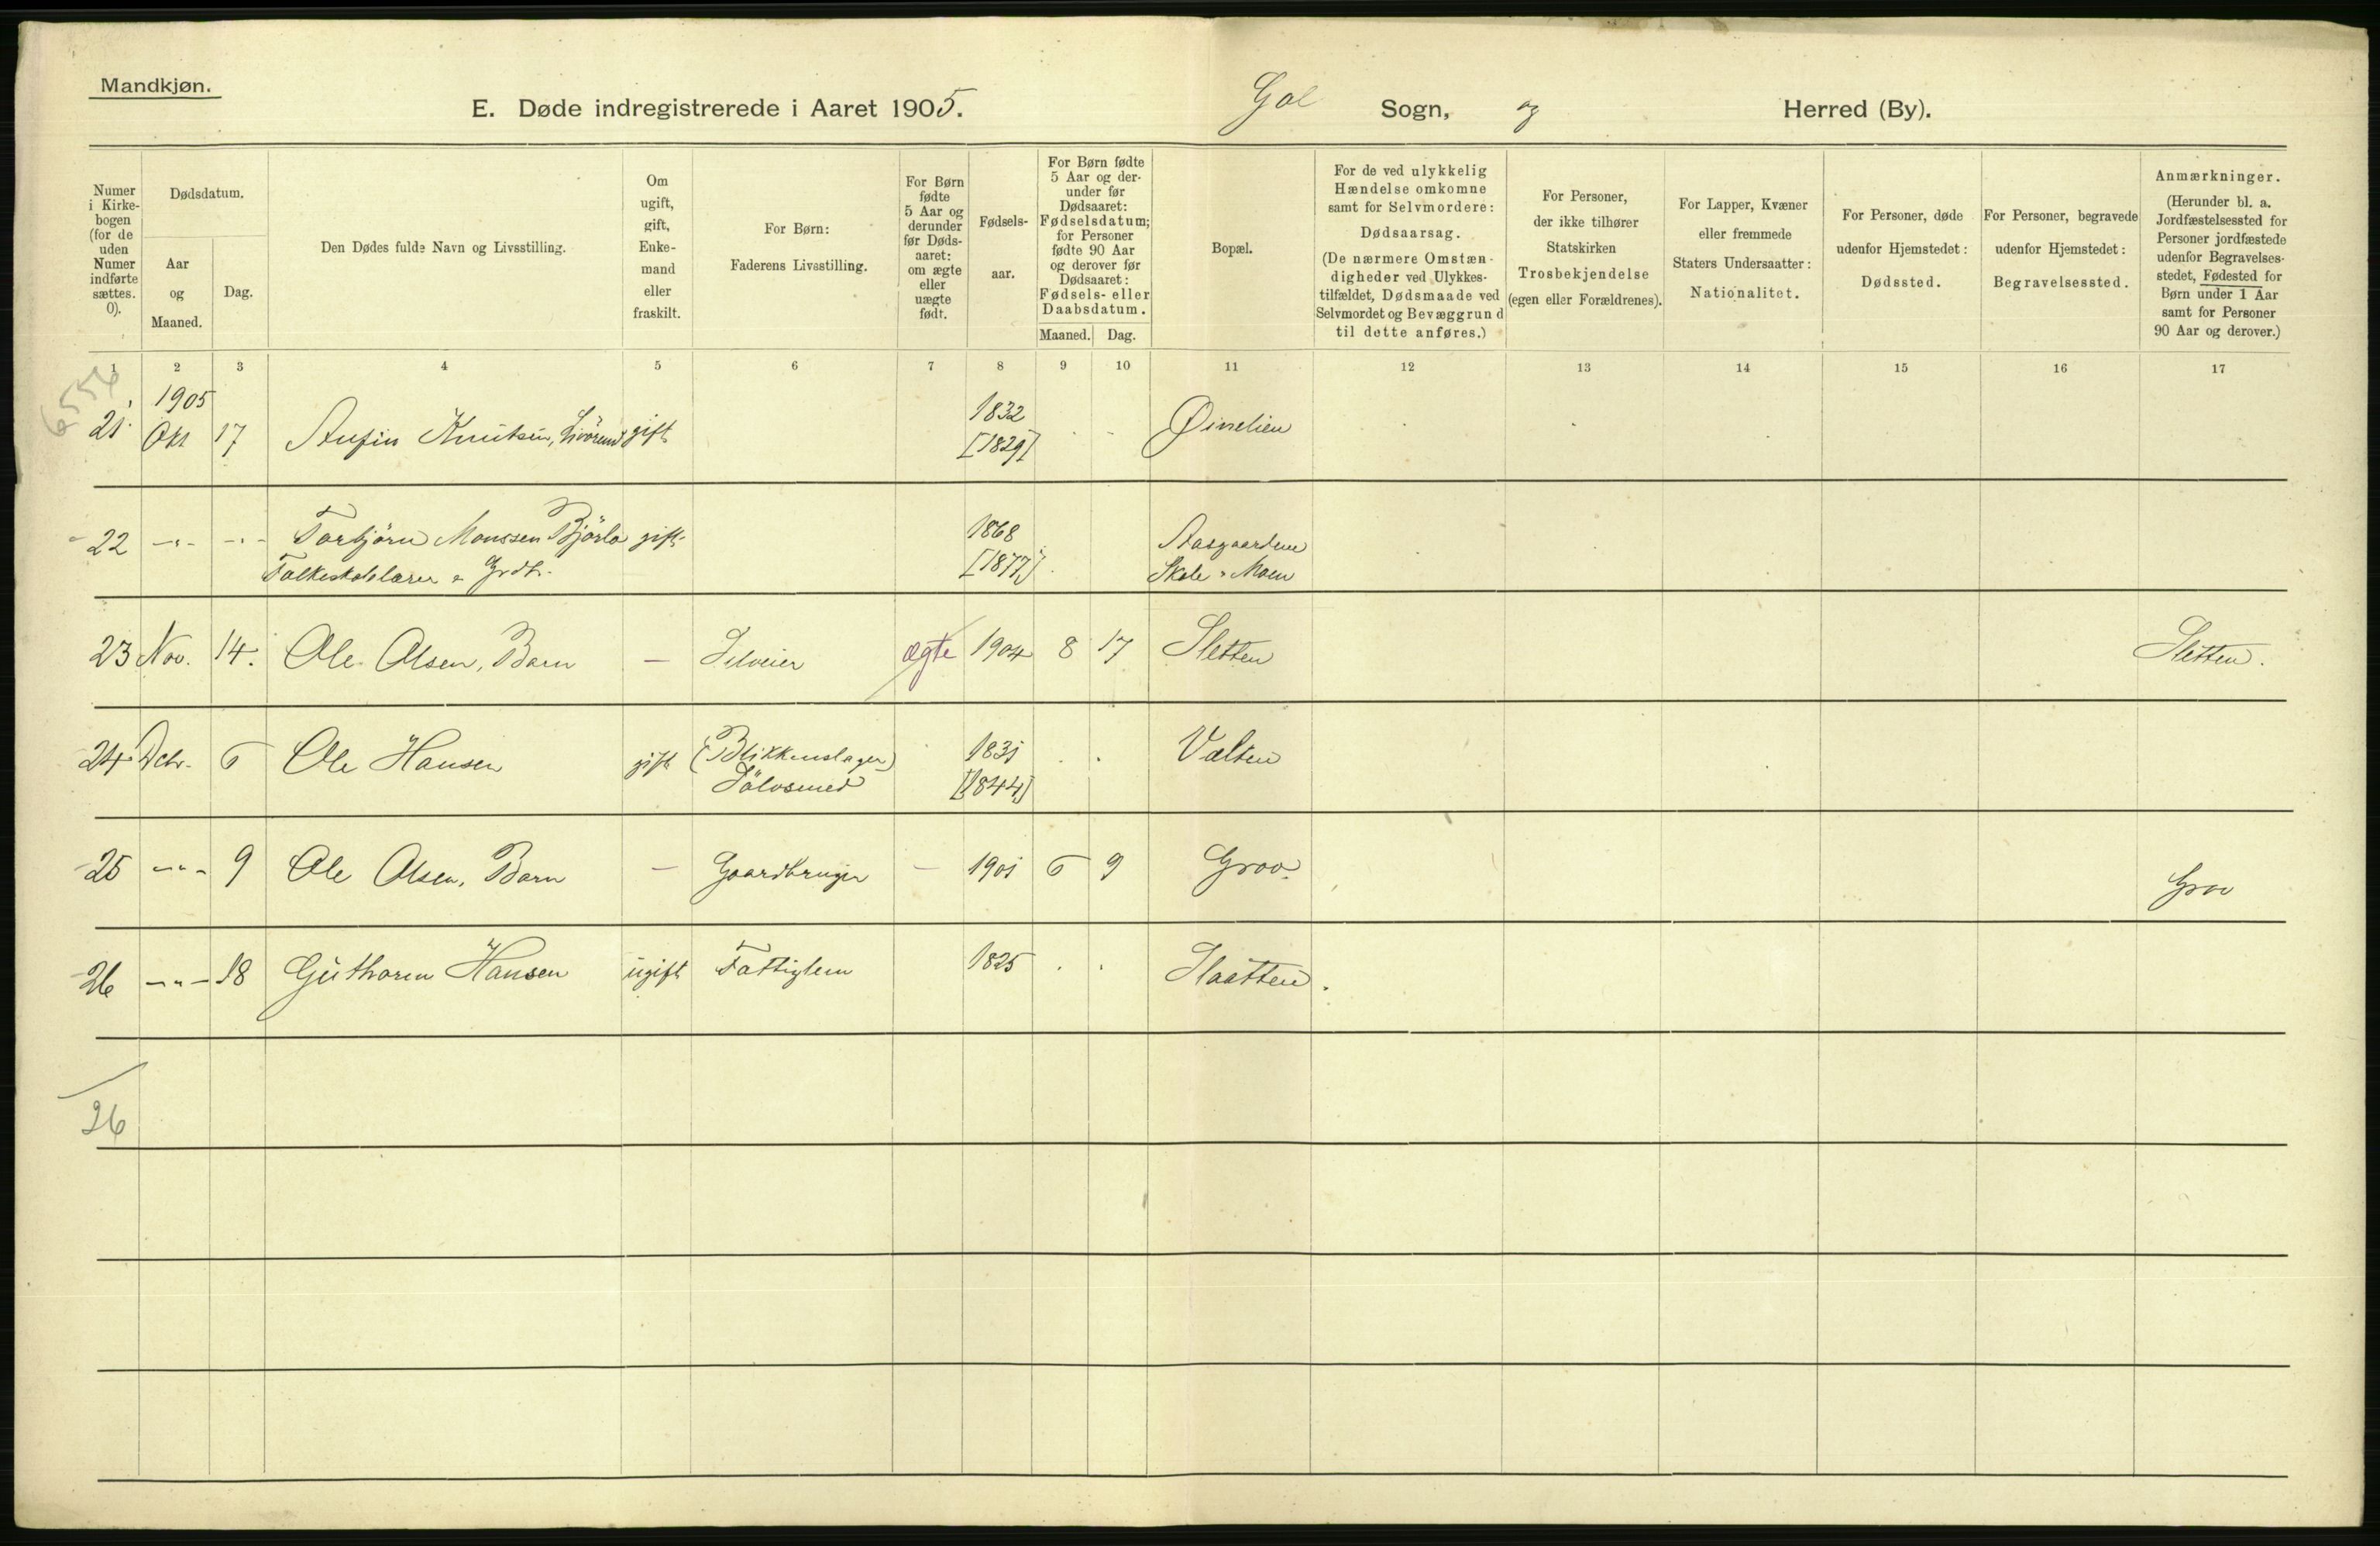 Mandkjøn.
E. Døde indregistrerede i Aaret 1905. Gol Sogn, og Herred (By).
Numer i Kirke-bogen (for de uden Numer indførte sættes. 0).
Dødsdatum.
Aar og Maaned.
Dag.
Den Dødes fulde Navn og Livsstilling.
Om ugift, gift, Enke-mand eller fraskilt.
For Børn: Faderens Livsstilling.
For Børn fødte 5 Aar og derunder før Døds-aaret: om ægte eller uægte født.
Fødsels-aar.
For Børn fødte 5 Aar og der-under før Dødsaaret: Fødselsdatum; for Personer fødte 90 Aar og derover før Dødsaaret: Fødsels- eller Daabsdatum.
Maaned. Dag.
Bopæl.
For de ved ulykkelig Hændelse omkomne samt for Selvmordere: Dødsaarsag. (De nærmere Omstæn-digheder ved Ulykkes-tilfældet, Dødsmaade ved Selvmordet og Bevæggrund til dette anføres.)
For Personer, der ikke tilhører Statskirken Trosbekjendelse (egen eller Forældrenes).
For Lapper, Kvæner eller fremmede Staters Undersaatter: Nationalitet.
For Personer, døde udenfor Hjemstedet: Dødssted.
For Personer, begravede udenfor Hjemstedet: Begravelsessted.
Anmærkninger. (Herunder bl. a. Jordfæstelsessted for Personer jordfæstede udenfor Begravelses-stedet, Fødested for Børn under 1 Aar samt for Personer 90 Aar og derover.)
1 2 3 4 5 6 7 8 9 10 11 12 13 14 15 16 17
1905
21. Okt 17 Knutsen, gift 1832 Øinelien
[1829]
22 -"- -"- Torbjörn Monssen Björlo gift 1868 Aasgaardene
Folkeskolelærer & Grdbr. [1877] Skole & Moen
23 Nov. 14. Ole Olsen, Barn — Selveier ægte 1904 8 17 Sletten Sletten.
24 Dcbr. 6 Ole Hansen gift (Blikkenslager) 1831 Valten
Sölvsmed [1844]
25 -"- 9 Ole Olsen, Barn — Gaardbruger — 1901 6 9 Groo. Groo
26 -"- 18 Guthorm Hansen ugift Fattiglem 1825 Slaatten.
26